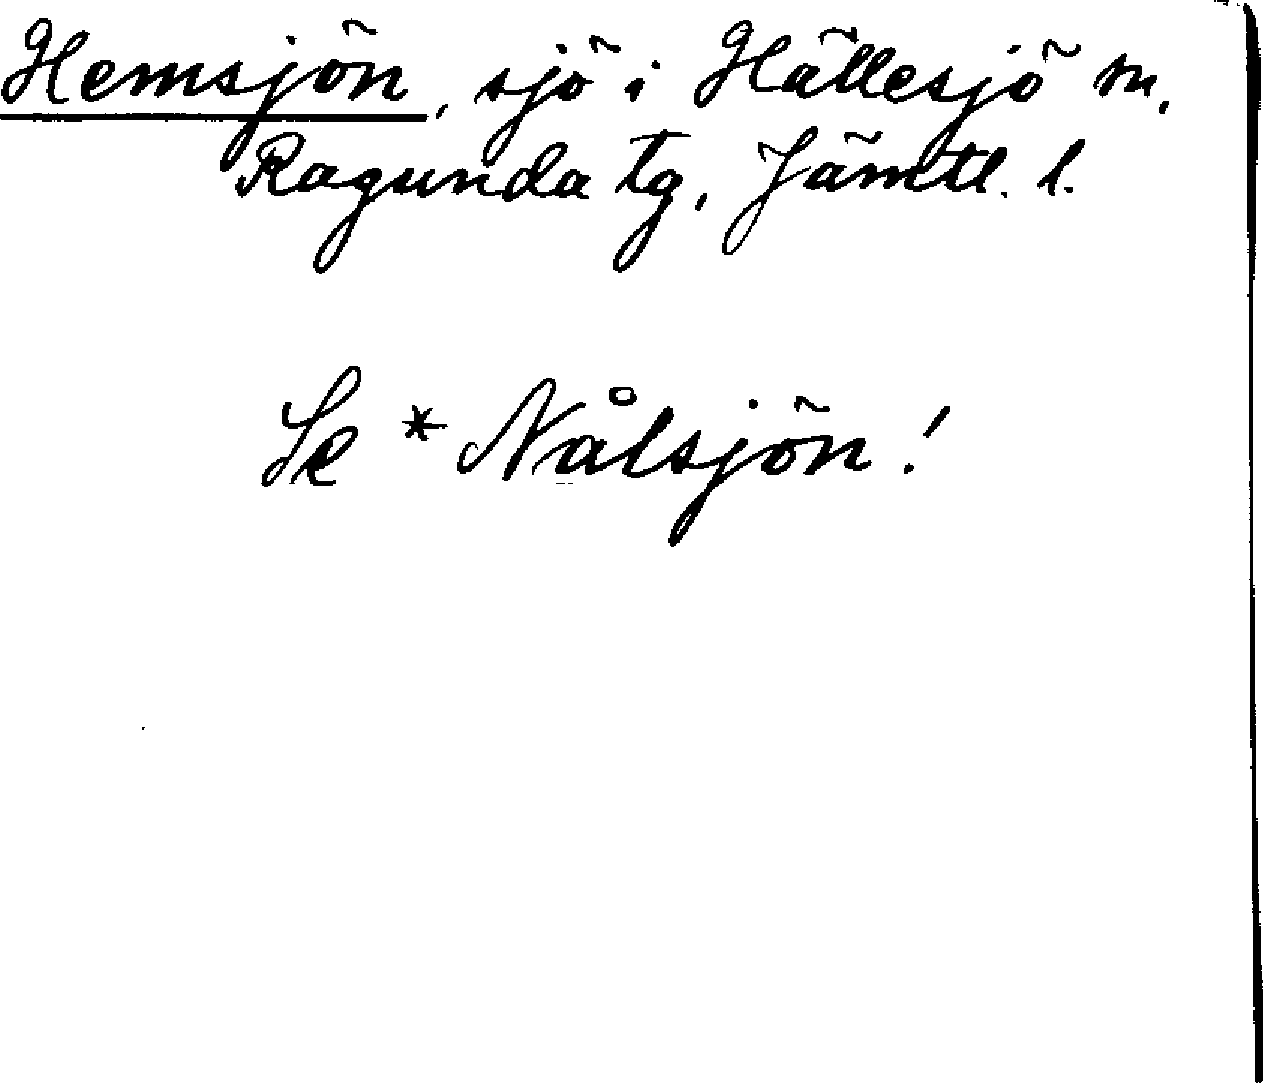 Hemsjön, sjö i Hällesjö sn,
Ragunda tg, Jämtl. l.
Se * Nålsjön!